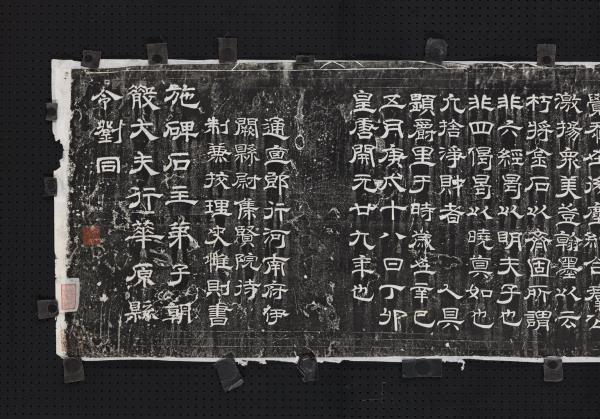 激揚衆美登翰墨以云
朽將金石以齊固所謂
非六經曷以明夫子也
非四偈曷以曉真如也
凡捨淨財者 人具
題爵里于時歲 辛巳
五月庚戌十八日丁卯
皇唐開元廿九年也
通直郎行河南府伊
闕縣尉集賢院待
制兼校理史惟則書
施碑石主弟子朝
散大夫行華原縣
令劉同